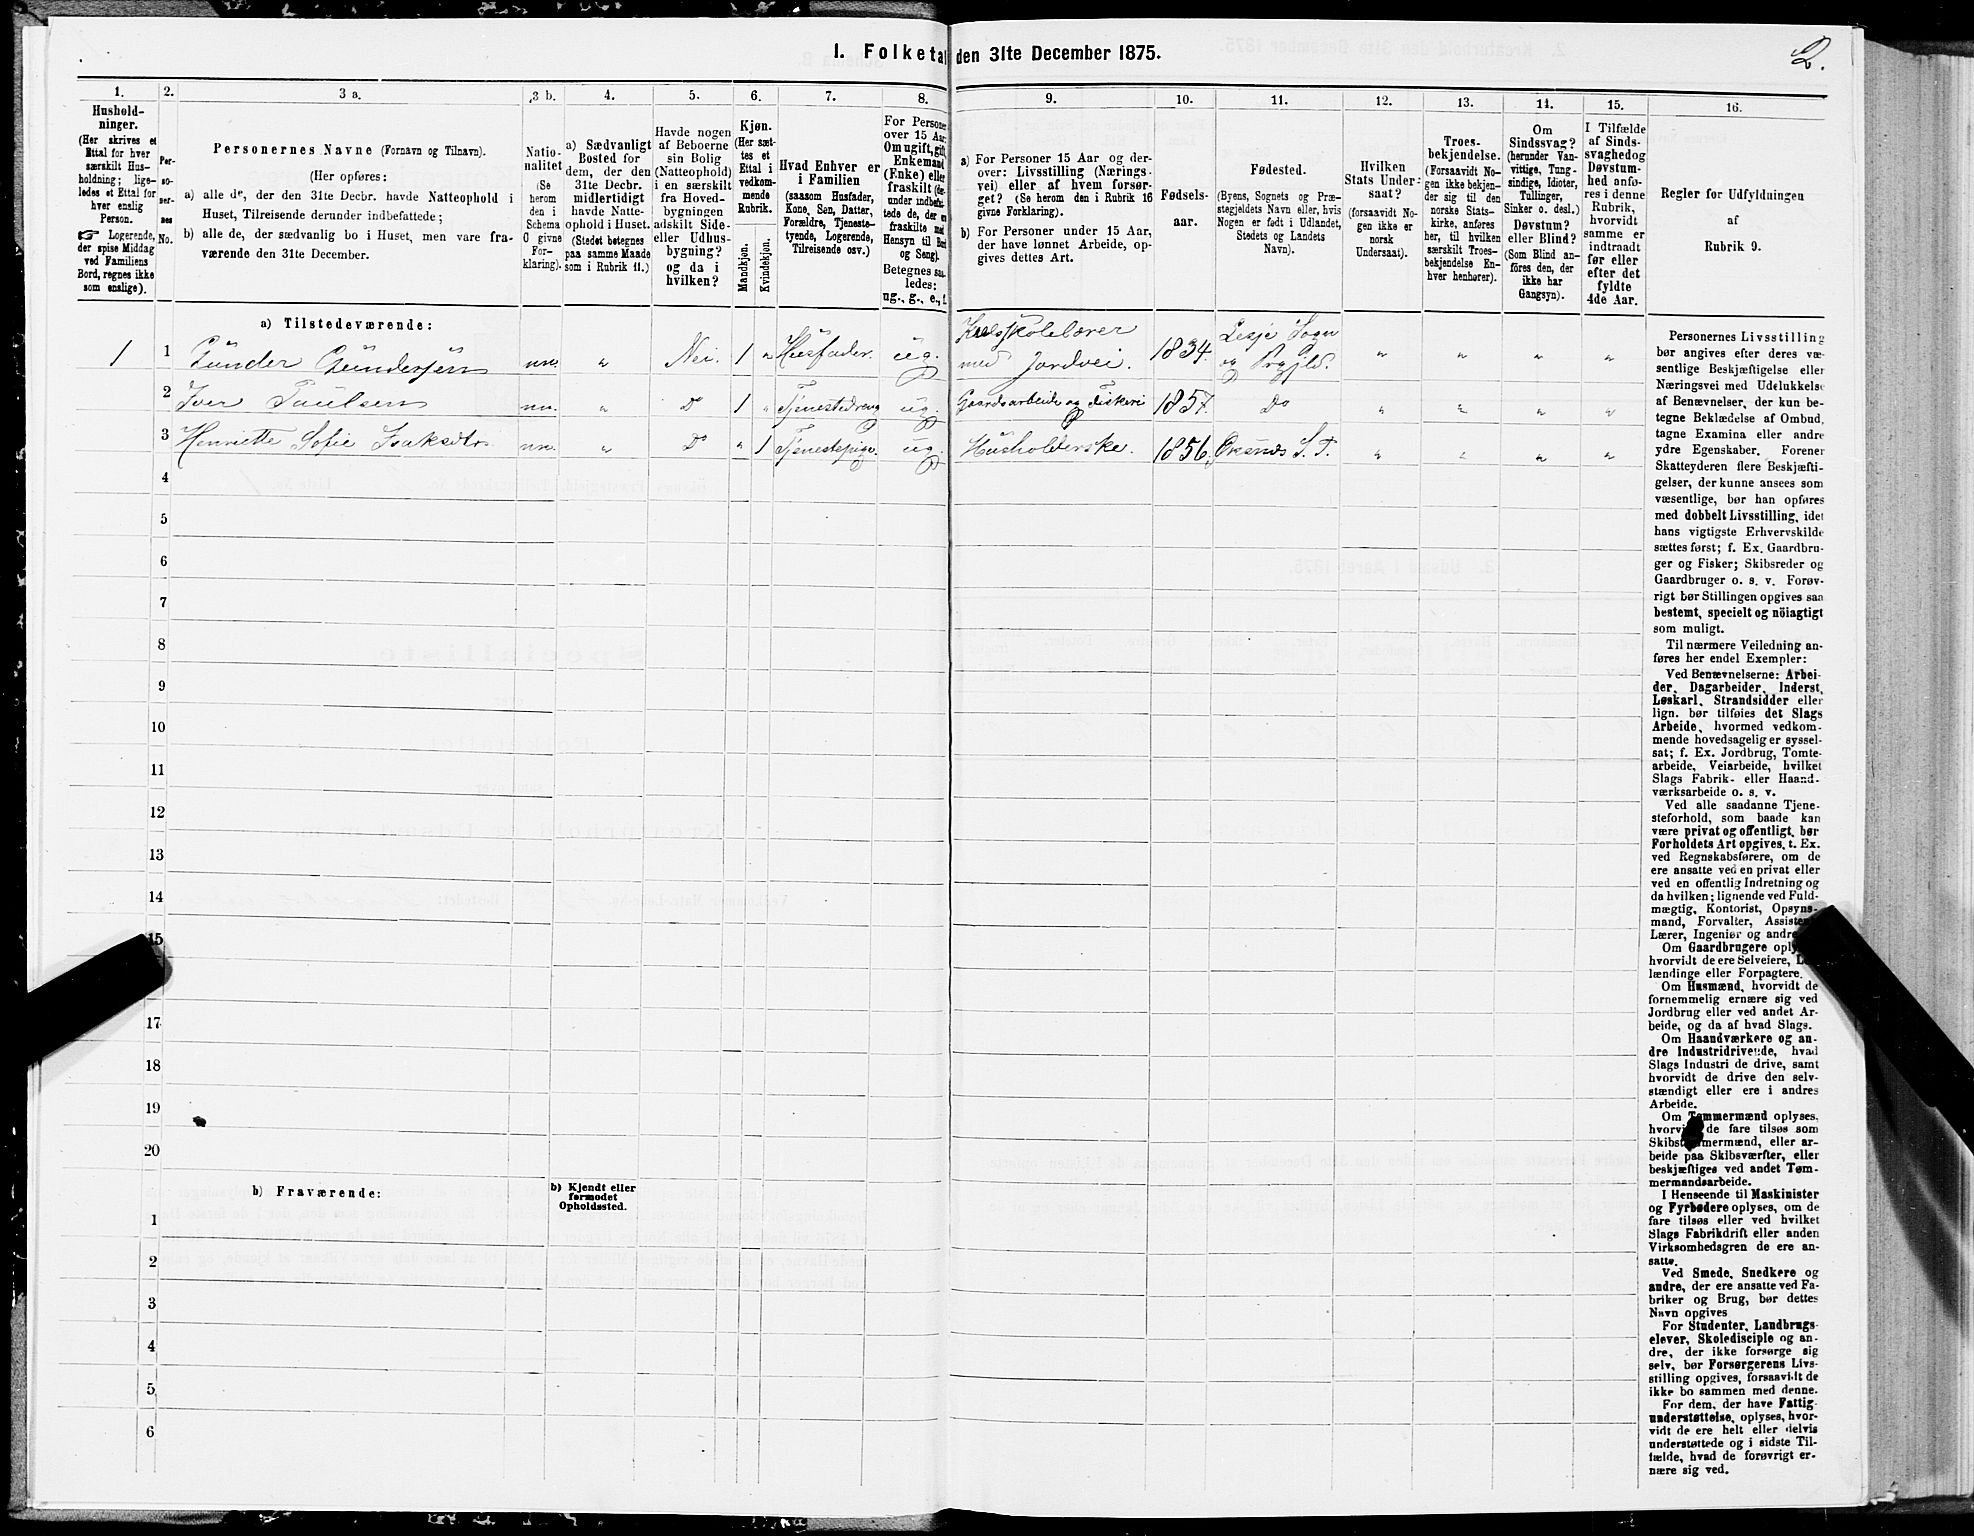 1. Folketal den 31te December 1875.
2.
1.
2.
3 a.
3 b.
4.
5.
6.
7.
8.
9.
10.
11.
12.
13.
14.
15.
16.
Hushold-
ninger.
(Her skrives et
Ettal for hver
særskilt Hus-
holdning; lige-
ledes et Ettal for
hver enslig
Person.
☞ Logerende,
der spise Middag
ved Familiens
Bord, regnes ikke
som enslige).
Per-
so-
ner-
nes
No.
Personernes Navne (Fornavn og Tilnavn).
(Her opføres:
a) alle de, der den 31te Decbr. havde Natteophold i
Huset, Tilreisende derunder indbefattede;
b) alle de, der sædvanlig bo i Huset, men vare fra-
værende den 31te December.
Natio-
nalitet
(Se
herom
den i
Schema
O givne
For-
klaring).
a) Sædvanligt
Bosted for
dem, der den
31te Decbr.
midlertidigt
havde Natte-
ophold i Huset.
(Stedet betegnes
paa samme Maade
som i Rubrik 11.)
Havde nogen
af Beboerne
sin Bolig
(Natteophold)
i en særskilt
fra Hoved-
bygningen
adskilt Side-
eller Udhus-
bygning?
og da i
hvilken?
Kjøn.
(Her sæt-
tes et
Ettal i
vedkom-
mende
Rubrik.
Mandkjøn.
Kvindekjøn.
Hvad Enhver er
i Familien
(saasom Husfader,
Kone, Søn, Datter,
Forældre, Tjeneste-
tyende, Logerende,
Tilreisende osv.)
For Personer
over 15 Aar:
Om ugift, gift,
Enkemand
(Enke) eller
fraskilt (der-
under indbefat-
tede de, der ere
fraskilte med
Hensyn til Bord
og Seng).
Betegnes saa-
ledes:
ug., g., e., f.
a) For Personer 15 Aar og der-
over: Livsstilling (Nærings-
vei) eller af hvem forsør-
get? (Se herom den i Rubrik 16
givne Forklaring).
b) For Personer under 15 Aar,
der have lønnet Arbeide, op-
gives dettes Art.
Fødsels-
aar.
Fødested.
(Byens, Sognets og Præ-
stegjeldets Navn eller, hvis
Nogen er født i Udlandet,
Stedets og Landets
Navn).
Hvilken
Stats Under-
saat?
(forsaavidt No-
gen ikke er
norsk
Undersaat).
Troes-
bekjendelse.
(Forsaavidt No-
gen ikke bekjen-
der sig til den
norske Stats-
kirke, anføres
her, til hvilken
særskilt Troes-
bekjendelse En-
hver henhører).
Om
Sindssvag?
(herunder Van-
vittige, Tung-
sindige, Idioter,
Tullinger,
Sinker o. desl.)
Døvstum?
eller Blind?
(Som Blind an-
føres den, der
ikke har
Gangsyn).
I Tilfælde
af Sinds-
svaghedog
Døvstum-
hed anfø-
res i denne
Rubrik,
hvorvidt
samme er
indtraadt
før eller
efter det
fyldte
4de Aar.
Regler for Udfyldningen
af
Rubrik 9.
a) Tilstedeværende:
1 1 Gunder Gundersen nn. " Nei. 1 " Husfader. ug. Kredsskolelærer med Jordvei. 1834. Lesje Sogn og Prgjld. " " " "
2 Iver Paulsen nn. " Do 1 " Tjenestedreng ug. Gaardsarbeide og Fiskeri 1857. Do " " " "
3 Henriette Sofie Isaksdtr. nn. " Do " 1 Tjenestepige. ug. Husholderske. 1856. Øksnæs S. P. " " " "
4
5
6
7
8
9
10
11
12
13
14
15
17
18
19
20
b) Fraværende:
b) Kjendt eller
formodet
Opholdssted.
1
2
3
4
5
6
Personernes Livsstilling
bør angives efter deres væ-
sentlige Beskjæftigelse eller
Næringsvei med Udelukkelse
af Benævnelser, der kun be-
tegne Beklædelse af Ombud,
tagne Examina eller andre
ydre Egenskaber. Forener
Skatteyderen flere Beskjæfti-
gelser, der kunne ansees som
væsentlige, bør han opføres
med dobbelt Livsstilling, idet
hans vigtigste Erhvervskilde
sættes først; f. Ex. Gaardbru-
ger og Fisker; Skibsreder og
Gaardbruger o. s. v. Forøv-
rigt bør Stillingen opgives saa
bestemt, specielt og nöiagtigt
som muligt.
Til nærmere Veiledning an-
føres her endel Exempler:
Ved Benævnelserne: Arbei-
der, Dagarbeider, Inderst,
Løskarl, Strandsidder eller
lign. bør tilføies det Slags
Arbeide, hvormed vedkom-
mende hovedsagelig er syssel-
sat; f. Ex. Jordbrug, Tomte-
arbeide, Veiarbeide, hvilket
Slags Fabrik- eller Haand-
værksarbeide o. s. v.
Ved alle saadanne Tjene-
steforhold, som baade kan
være privat og offentligt, bør
Forholdets Art opgives, t. Ex.
ved Regnskabsførere, om de
ere ansatte ved en privat eller
ved en offentlig Indretning og
da hvilken; lignende ved Fuld-
mægtig, Kontorist, Opsyns-
mand, Forvalter, Assistent,
Lærer, Ingeniør og andre.
Om Gaardbrugere oplyses,
hvorvidt de ere Selveiere, Lei-
lændinge eller Forpagtere.
Om Husmænd, hvorvidt de
fornemmelig ernære sig ved
Jordbrug eller ved andet Ar-
beide, og da af hvad Slags.
Om Haandværkere og an-
dre Industridrivende, hvad
Slags Industri de drive, samt
hvorvidt de drive den selv-
stændigt eller ere i andres
Arbeide.
Om Tømmermænd oplyses,
hvorvidt de fare tilsøs som
Skibstømmermænd, eller ar-
beide paa Skibsværfter, eller
beskjæftiges ved andet Tøm-
mermandsarbeide.
I Henseende til Maskinister
og Fyrbødere oplyses, om de
fare tilsøs eller ved hvilket
Slags Fabrikdrift eller anden
Virksomhedsgren de ere an-
satte.
Ved Smede, Snedkere og
andre, der ere ansatte ved Fa-
briker og Brug, bør dettes
Navn opgives
For Studenter, Landbrugs-
elever, Skoledisciple og an-
dre, der ikke forsørge sig
selv, bør Forsørgerens Livs-
stilling opgives, forsaavidt de
ikke bo sammen med denne.
For dem, der have Fattig-
understøttelse, oplyses, hvor-
vidt de ere helt eller delvis
understøttede og i sidste Til-
fælde, hvad de forøvrigt er-
nære sig ved.